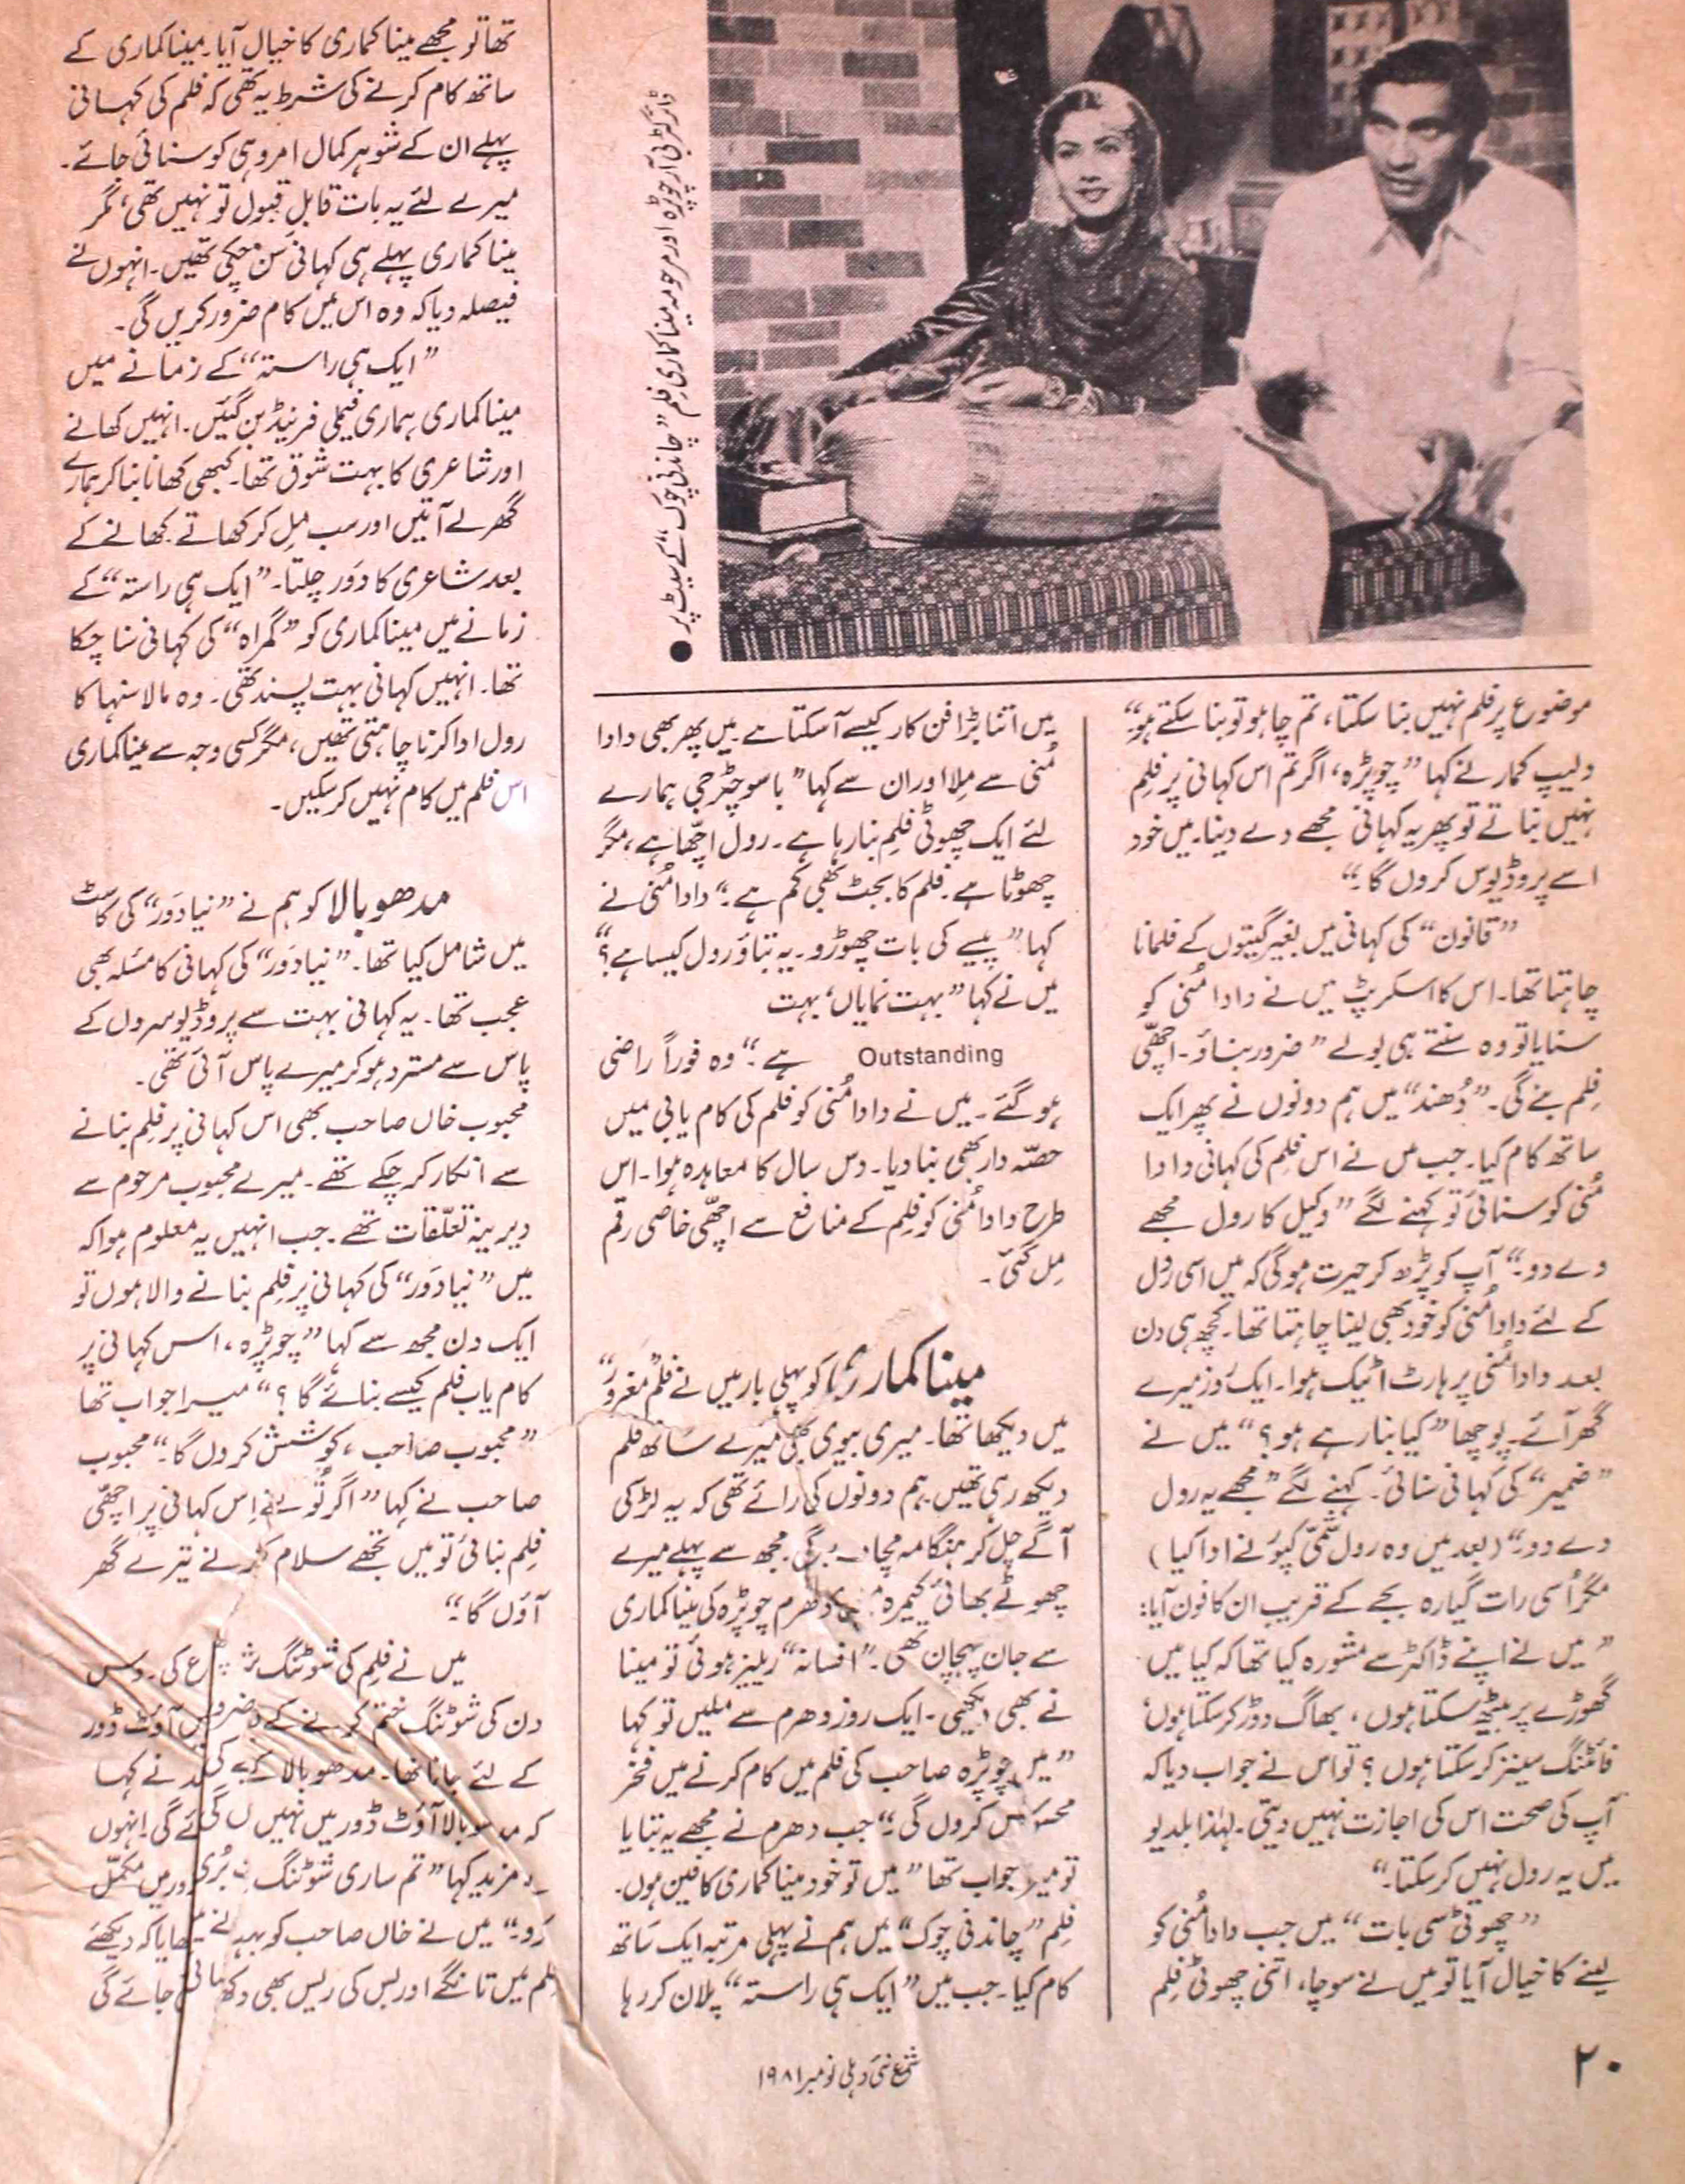 ڈائرکٹر بی آر چوپڑہ اور مرحومہ مینا کماری فلم ”چاندنی چوک“ کے سیٹ پر ●
موضوع پر فلم نہیں بنا سکتا، تم چاہو تو بنا سکتے ہو“
دلیپ کمار نے کہا ”چوپڑہ، اگر تم اس کہانی پر فلم
نہیں بناتے تو پھر یہ کہانی مجھے دے دینا۔ میں خود
اسے پروڈیوس کروں گا۔“
”قانون“ کی کہانی میں بغیر گیتوں کے فلمانا
چاہتا تھا۔ اس کا اسکرپٹ میں نے دادا مُنی کو
سنایا تو وہ سنتے ہی بولے ”ضرور بناؤ۔ اچھی
فلم بنے گی۔ ”دُھند“ میں ہم دونوں نے پھر ایک
ساتھ کام کیا۔ جب میں نے اس فلم کی کہانی دادا
مُنی کو سنائی تو کہنے لگے ”وکیل کا رول مجھے
دے دو۔“ آپ کو پڑھ کر حیرت ہوگی کہ میں اسی رول
کے لئے دادا مُنی کو خود بھی لینا چاہتا تھا۔ کچھ ہی دن
بعد دادا مُنی پر ہارٹ اٹیک ہوا۔ ایک روز میرے
گھر آئے۔ پوچھا ”کیا بنا رہے ہو؟“ میں نے
”ضمیر“ کی کہانی سنائی۔ کہنے لگے ”مجھے یہ رول
دے دو۔“ (بعد میں وہ رول شمّی کپور نے ادا کیا)
مگر اُسی رات گیارہ بجے کے قریب ان کا فون آیا:
”میں نے اپنے ڈاکٹر سے مشورہ کیا تھا کہ کیا میں
گھوڑے پر بیٹھ سکتا ہوں، بھاگ دوڑ کر سکتا ہوں،
فائٹنگ سینز کر سکتا ہوں؟ تو اس نے جواب دیا کہ
آپ کی صحت اس کی اجازت نہیں دیتی۔ لہٰذا بلدیو
میں یہ رول نہیں کر سکتا۔“
”چھوٹی سی بات“ میں جب دادا مُنی کو
لینے کا خیال آیا تو میں نے سوچا، اتنی چھوٹی فلم
میں اتنا بڑا فن کار کیسے آ سکتا ہے۔ میں پھر بھی دادا
مُنی سے ملا اور ان سے کہا ”باسو چٹرجی ہمارے
لئے ایک چھوٹی فلم بنا رہا ہے۔ رول اچھا ہے، مگر
چھوٹا ہے۔ فلم کا بجٹ بھی کم ہے۔“ دادا مُنی نے
کہا ”پیسے کی بات چھوڑو۔ یہ بتاؤ رول کیسا ہے؟“
میں نے کہا ”بہت نمایاں، بہت
Outstanding ہے“ وہ فوراً راضی
ہو گئے۔ میں نے دادا مُنی کو فلم کی کام یابی میں
حصّہ دار بھی بنا دیا۔ دس سال کا معاہدہ ہوا۔ اس
طرح دادا مُنی کو فلم کے منافع سے اچھی خاصی رقم
مل گئی۔
مینا کماری کو پہلی بار میں نے فلم ”مغرور“
میں دیکھا تھا۔ میری بیوی بھی میرے ساتھ فلم
دیکھ رہی تھیں۔ ہم دونوں کی رائے تھی کہ یہ لڑکی
آگے چل کر ہنگامہ مچا گی۔ مجھ سے پہلے میرے
چھوٹے بھائی کیمرہ دھرم چوپڑہ کی مینا کماری
سے جان پہچان تھی۔ ”افسانہ“ ریلیز ہوئی تو مینا
نے بھی دیکھی۔ ایک روز دھرم سے ملیں تو کہا
”میں چوپڑہ صاحب کی فلم میں کام کرنے میں فخر
محسوس کروں گی۔“ جب دھرم نے مجھے یہ بتایا
تو میرا جواب تھا ”میں تو خود مینا کماری کا فین ہوں۔
فلم ”چاندنی چوک“ میں ہم نے پہلی مرتبہ ایک ساتھ
کام کیا۔ جب میں ”ایک ہی راستہ“ پلان کر رہا
تھا تو مجھے مینا کماری کا خیال آیا۔ مینا کماری کے
ساتھ کام کرنے کی شرط یہ تھی کہ فلم کی کہانی
پہلے ان کے شوہر کمال امروہی کو سنائی جائے۔
میرے لئے یہ بات قابلِ قبول تو نہیں تھی، مگر
مینا کماری پہلے ہی کہانی سُن چکی تھیں۔ انہوں نے
فیصلہ دیا کہ وہ اس میں کام ضرور کریں گی۔
”ایک ہی راستہ“ کے زمانے میں
مینا کماری ہماری فیملی فرینڈ بن گئیں۔ انہیں کھانے
اور شاعری کا بہت شوق تھا۔ کبھی کھانا بنا کر ہمارے
گھر لے آتیں اور سب مل کر کھاتے۔ کھانے کے
بعد شاعری کا دَور چلتا۔ ”ایک ہی راستہ“ کے
زمانے میں مینا کماری کو ”گمراہ“ کی کہانی سنا چکا
تھا۔ انہیں کہانی بہت پسند تھی۔ وہ مالا سنہا کا
رول ادا کرنا چاہتی تھیں، مگر کسی وجہ سے مینا کماری
اس فلم میں کام نہیں کر سکیں۔
مدھوبالا کو ہم نے ”نیا دَور“ کی کاسٹ
میں شامل کیا تھا۔ ”نیا دَور“ کی کہانی کا مسئلہ بھی
عجب تھا۔ یہ کہانی بہت سے پروڈیوسروں کے
پاس سے مسترد ہو کر میرے پاس آئی تھی۔
محبوب خاں صاحب بھی اس کہانی پر فلم بنانے
سے انکار کر چکے تھے۔ میرے محبوب مرحوم سے
دیرینہ تعلّقات تھے۔ جب انہیں یہ معلوم ہوا کہ
میں ”نیا دَور“ کی کہانی پر فلم بنانے والا ہوں تو
ایک دن مجھ سے کہا ”چوپڑہ، اس کہانی پر
کام یاب فلم کیسے بنائے گا؟“ میرا جواب تھا
”محبوب صاحب، کوشش کروں گا۔“ محبوب
صاحب نے کہا ”اگر تُو نے اِس کہانی پر اچھی
فلم بنائی تو میں تجھے سلام کرنے تیرے گھر
آؤں گا۔“
میں نے فلم کی شوٹنگ شروع کی۔ دس
دن کی شوٹنگ ختم کرنے کے بعد آؤٹ ڈور
کے لئے جانا تھا۔ مدھوبالا کے نے کہا
کہ مدھوبالا آؤٹ ڈور میں نہیں جائے گی۔ انہوں
نے مزید کہا ”تم ساری شوٹنگ میں مکمّل
کرو۔“ میں نے خاں صاحب کو سمجھایا کہ دیکھئے
فلم میں تانگے اور بس کی ریس بھی دکھائی جائے گی
۲۰
شمع نئی دہلی نومبر ۱۹۸۱